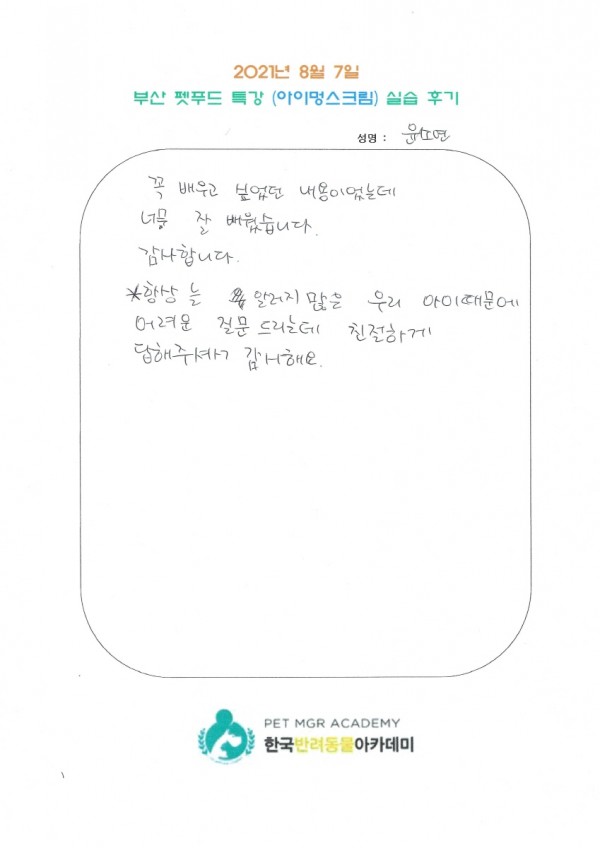 2021년 8월 7일
부산 펫푸드 특강 (아이멍스크림) 실습 후기
성명 : 윤소연
꼭 배우고 싶었던 내용이었는데
너무 잘 배웠습니다.
감사합니다.
*항상 늘 알러지 많은 우리 아이때문에
어려운 질문 드리는데 친절하게
답해주셔서 감사해요.
PET MGR ACADEMY
한국반려동물아카데미